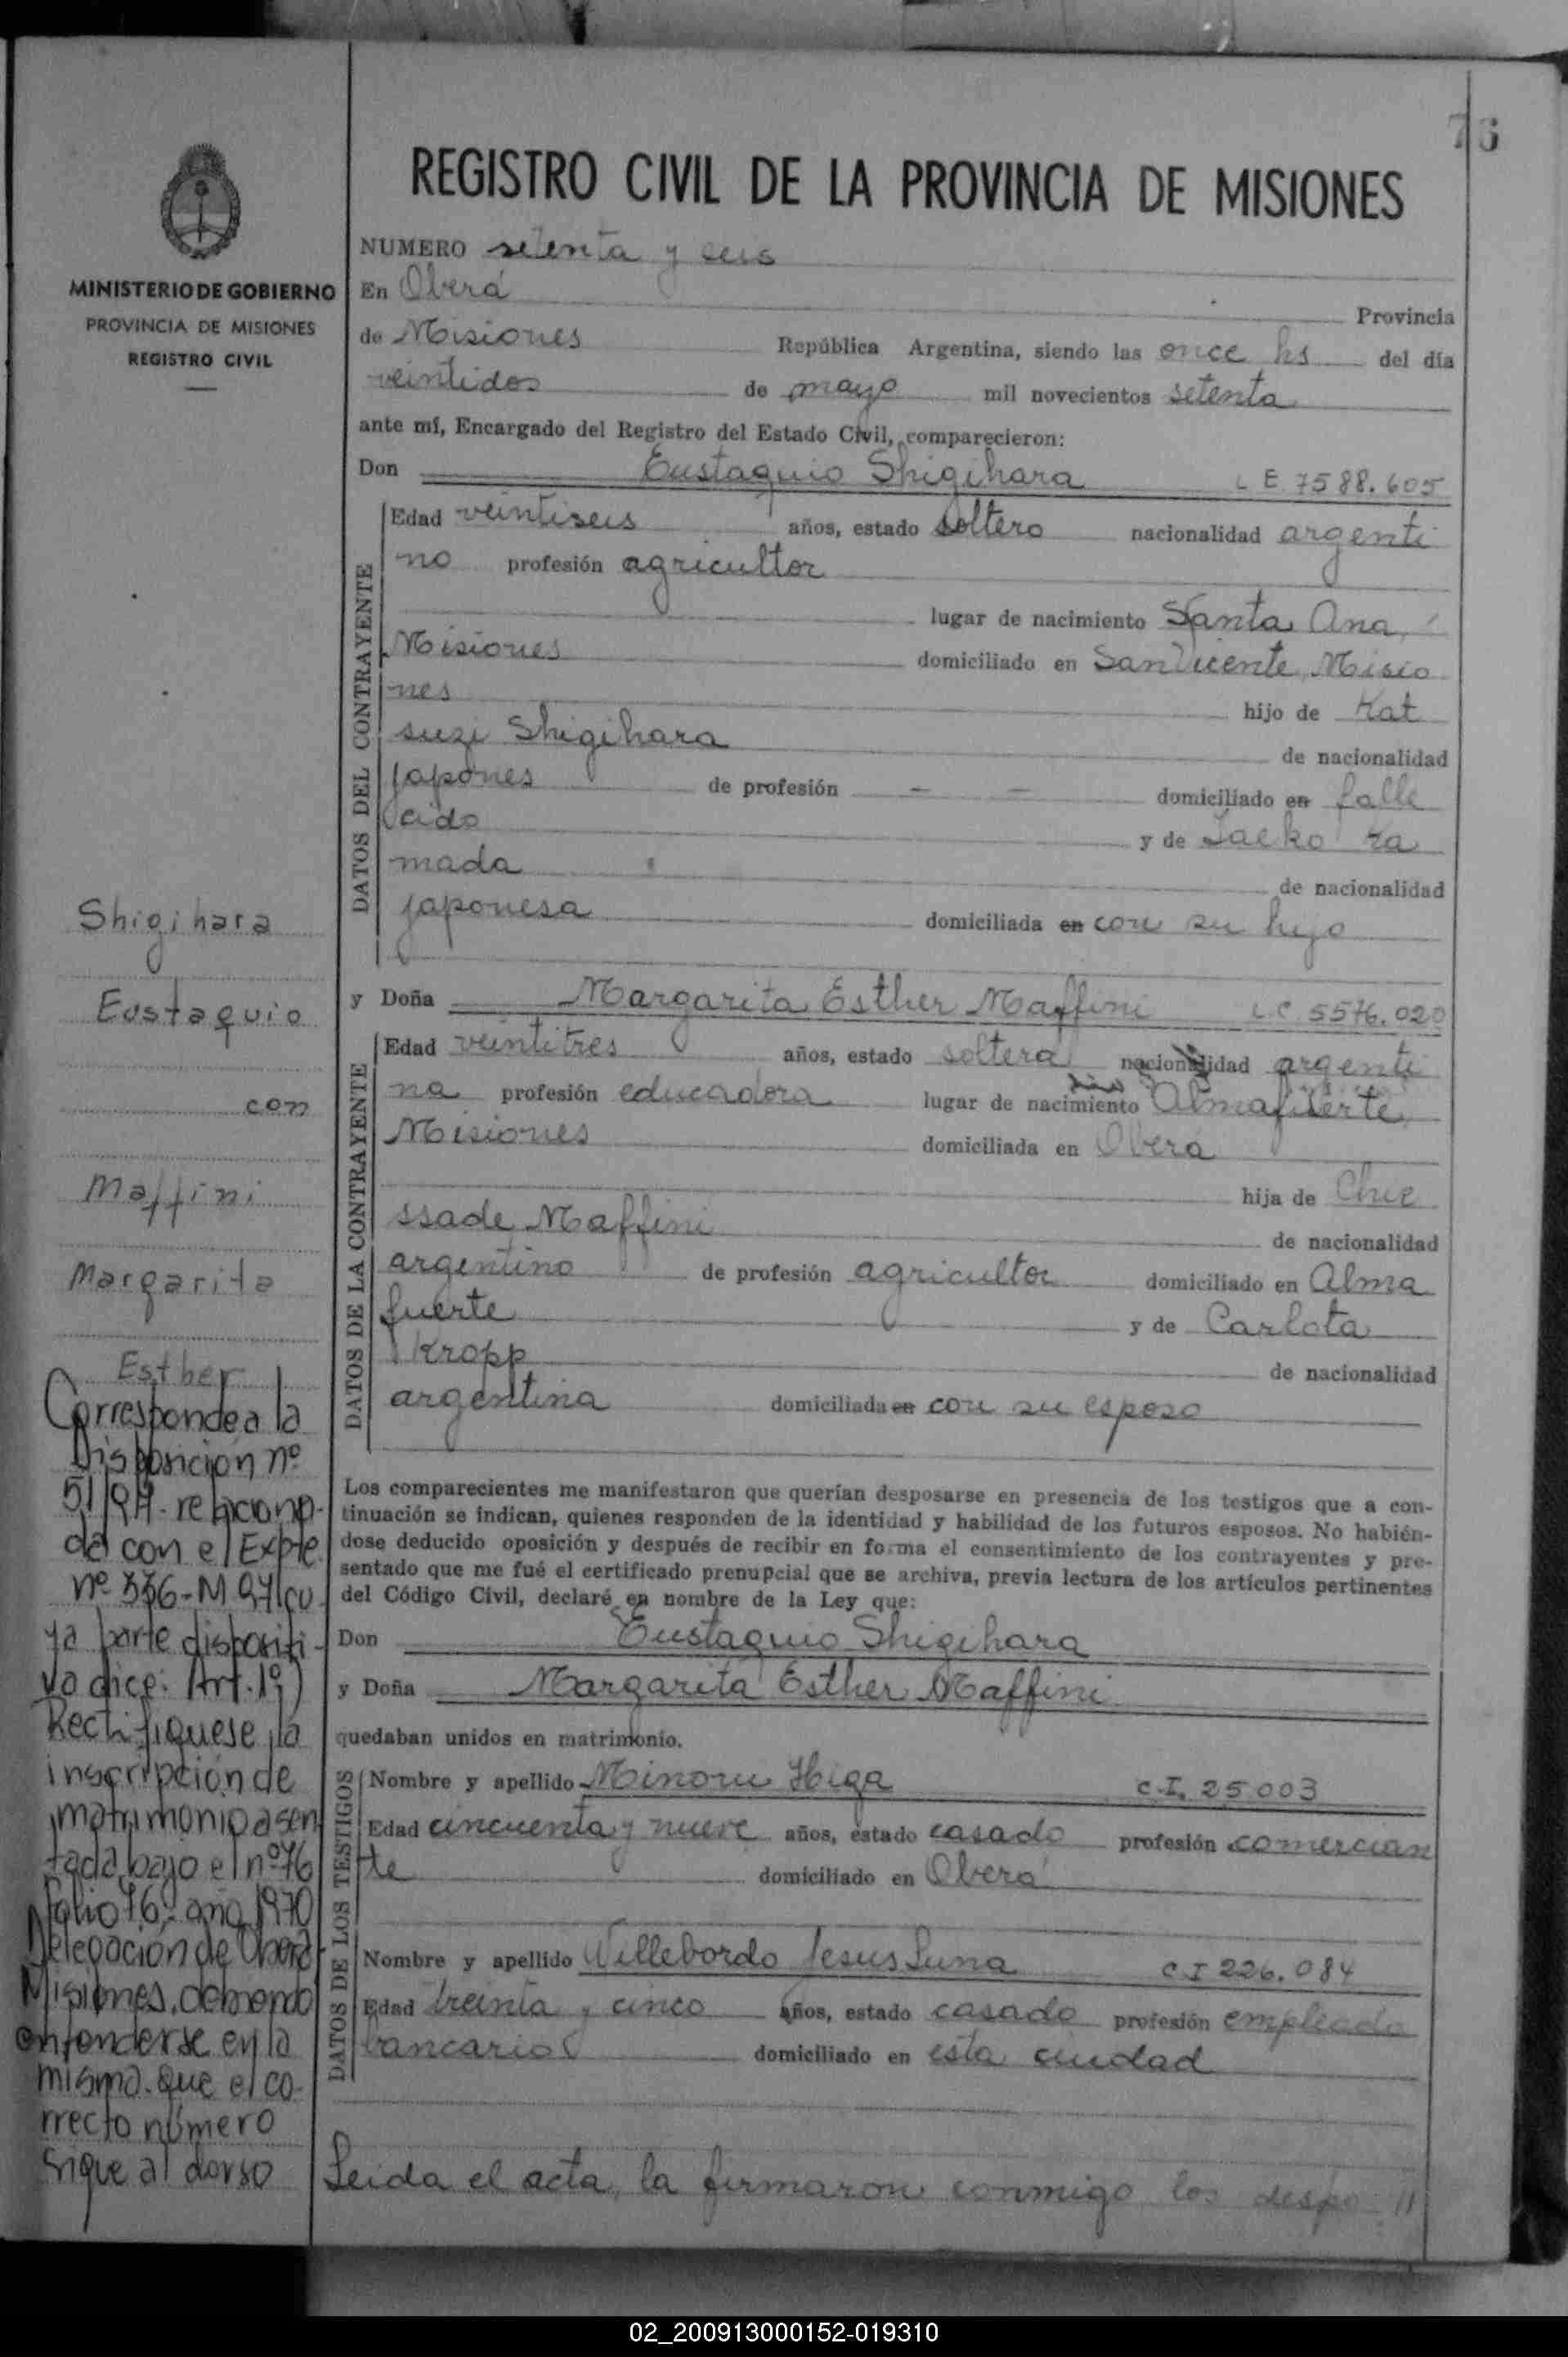 76
REGISTRO CIVIL DE LA PROVINCIA DE MISIONES
MINISTERIO DE GOBIERNO
PROVINCIA DE MISIONES
REGISTRO CIVIL
NUMERO setenta y seis
En Oberá Provincia
de Misiones República Argentina, siendo las once hs del día
veintidos de mayo mil novecientos setenta
ante mí, Encargado del Registro del Estado Civil, comparecieron:
Don Eustaquio Shigihara L E 7588.605
DATOS DEL CONTRAYENTE
Edad veintiseis años, estado soltero nacionalidad argenti
no profesión agricultor
lugar de nacimiento Santa Ana,
Misiones domiciliado en San Vicente, Misio
nes hijo de Kat
suzi Shigihara de nacionalidad
japones de profesión — — domiciliado en falle
cido y de Taeko Ka
mada de nacionalidad
japonesa domiciliada en con su hijo
y Doña Margarita Esther Maffini L.C. 5576.020
DATOS DE LA CONTRAYENTE
Edad veintitres años, estado soltera nacionalidad argenti
na profesión educadora lugar de nacimiento Almafuerte,
Misiones domiciliada en Oberá
hija de
ssade Maffini de nacionalidad
argentino de profesión agricultor domiciliado en Alma
fuerte y de Carlota
Kropp de nacionalidad
argentina domiciliada en con su esposo
Los comparecientes me manifestaron que querían desposarse en presencia de los testigos que a con-
tinuación se indican, quienes responden de la identidad y habilidad de los futuros esposos. No habién-
dose deducido oposición y después de recibir en forma el consentimiento de los contrayentes y pre-
sentado que me fué el certificado prenupcial que se archiva, previa lectura de los artículos pertinentes
del Código Civil, declaré en nombre de la Ley que:
Don Eustaquio Shigihara
y Doña Margarita Esther Maffini
quedaban unidos en matrimonio.
DATOS DE LOS TESTIGOS
Nombre y apellido Minoru Higa C.I. 25003
Edad cincuenta y nueve años, estado casado profesión comercian
te domiciliado en Oberá
Nombre y apellido Willebordo Jesus Luna C I 226.084
Edad treinta y cinco años, estado casado profesión empleado
bancario domiciliado en esta ciudad
Leida el acta, la firmaron conmigo los despo //
Shigihara
Eustaquio
con
Maffini
Margarita
Esther
Corresponde a la
Disposición nº
51/97- relaciona-
da con el Expte.
nº 336-M 97/cu
ya parte dispositi-
va dice: Art. 1º)
Rectifiquese la
inscripción de
matrimonio asen
tada bajo el nº 76
folio 76, año 1970
Delegación de Oberá
Misiones, debiendo
entenderse en la
misma. que el co-
rrecto número
sigue al dorso
02_200913000152-019310